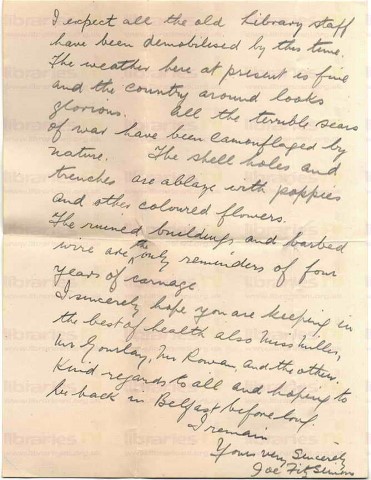 I expect all the old Library staff
have been demobilised by this time.
The weather here at present is fine
and the country around looks
glorious. All the terrible scars
of war have been camouflaged by
nature. The shell holes and
trenches are ablaze with poppies
and other coloured flowers.
The ruined buildings and barbed
wire are the only reminders of four
years of carnage
I sincerely hope you are keeping in
the best of health also Miss Miller,
Mr Gourlay, Mr Rowan, and the others.
Kind regards to all and hoping to
be back in Belfast before long.
I remain
Yours very sincerely
Joe FitzSimons